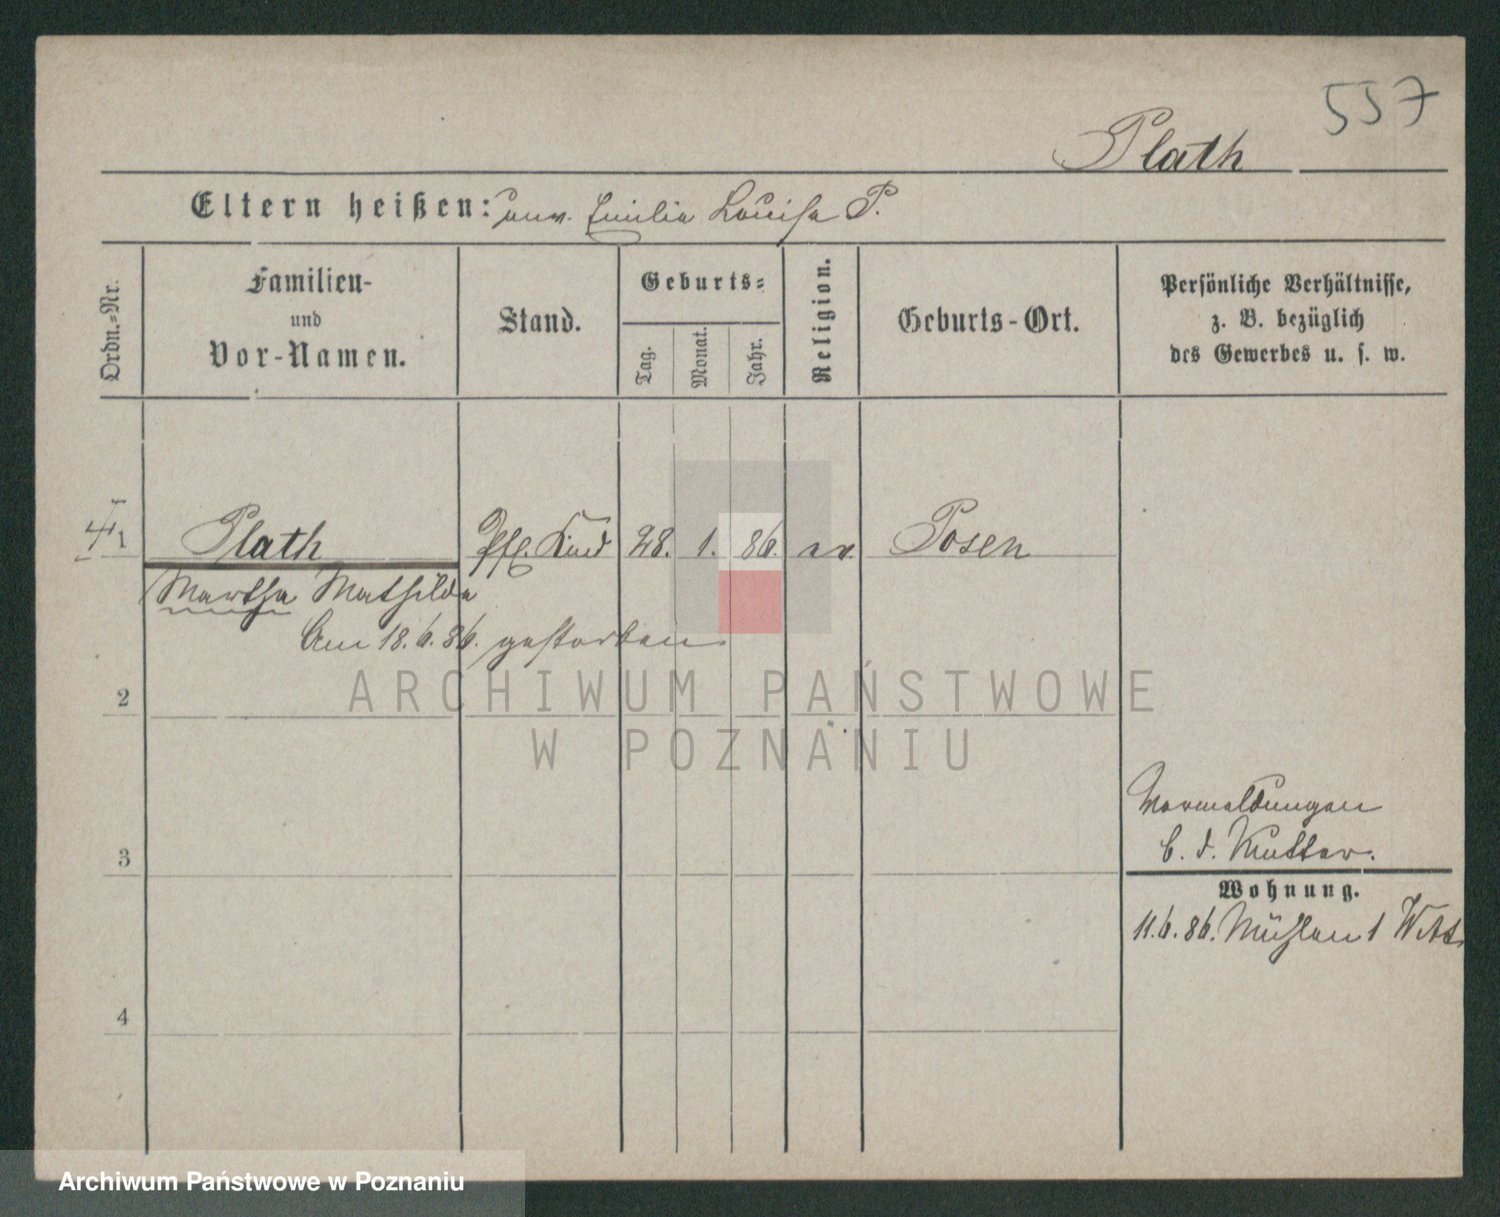 557
Plath
Eltern heißen: unv. Emilie Louise P.
Ordn.-Nr.
Familien-
und
Vor-Namen.
Stand.
Geburts-
Tag.
Monat.
Jahr.
Religion.
Geburts-Ort.
Persönliche Verhältnisse,
z. B. bezüglich
des Gewerbes u. s. w.
1 Plath Pfl. Kind 28. 1. 86. ev. Posen
Martha Mathilde
Am 18.6.86. gestorben
ARCHIWUM PAŃSTWOWE
W POZNANIU
2
3
4
Vormeldungen
b. d. Mutter.
Wohnung.
11.6.86. Mühlen 1
Archiwum Państwowe w Poznaniu